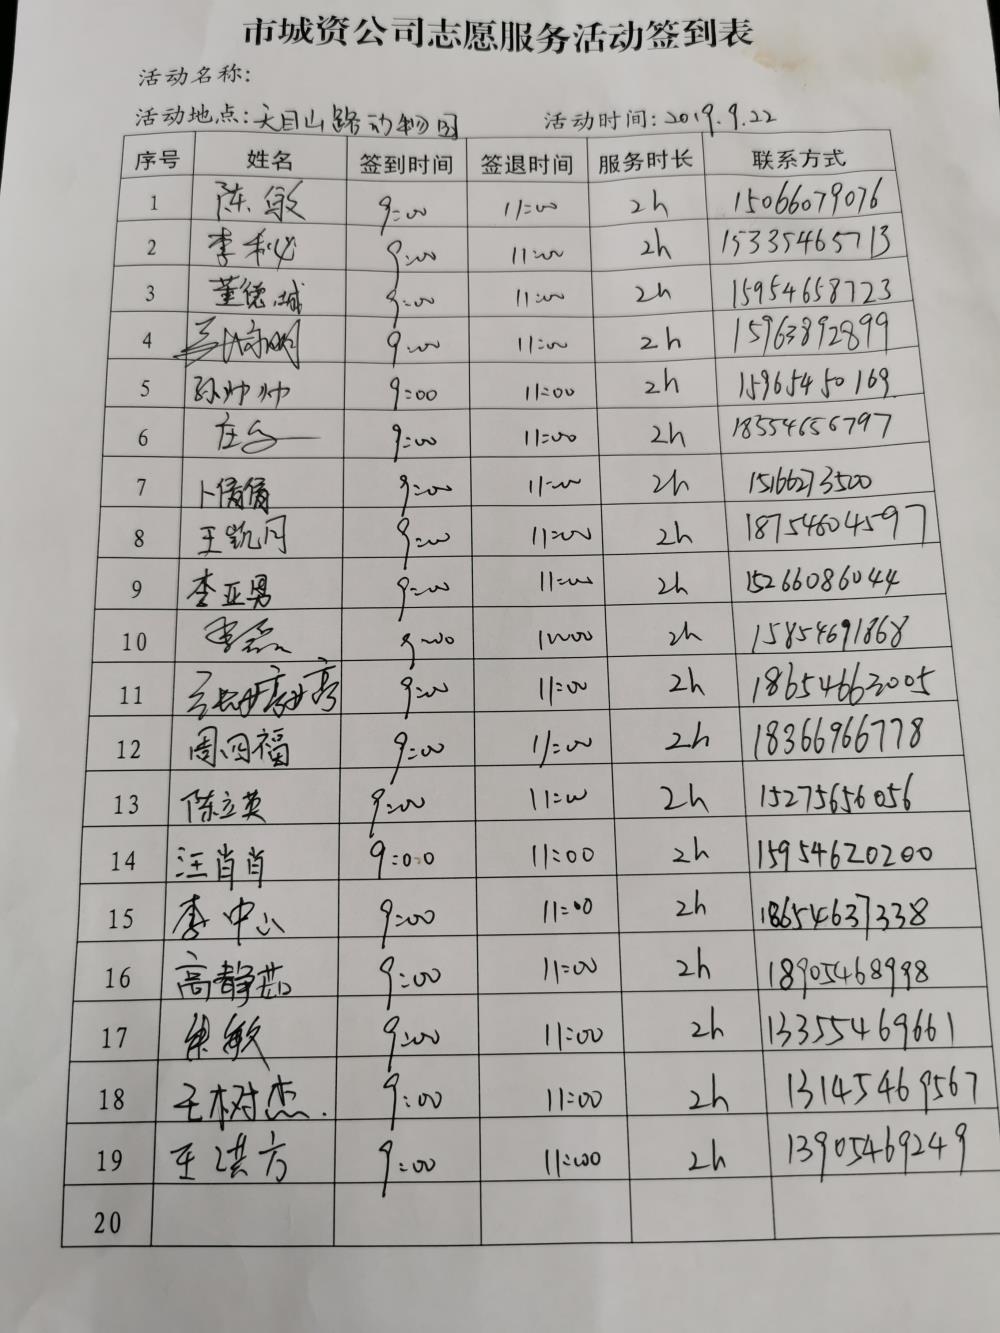 市城资公司志愿服务活动签到表
活动名称:
活动地点:天目山路动物园 活动时间:2019.9.22
序号 姓名 签到时间 签退时间 服务时长 联系方式
1 陈敏 9:00 11:00 2h 15066079076
2 李利 9:00 11:00 2h 15335465713
3 董德城 9:00 11:00 2h 15954658723
4 9:00 11:00 2h 15963892899
5 孙帅帅 9:00 11:00 2h 15965450169
6 9:00 11:00 2h 18554656797
7 卜倩倩 9:00 11:00 2h 15166273500
8 王凯月 9:00 11:00 2h 18754604597
9 李亚男 9:00 11:00 2h 15266086044
10 李磊 9:00 11:00 2h 15854691868
11 9:00 11:00 2h 18654663005
12 周四福 9:00 11:00 2h 18366966778
13 陈立英 9:00 11:00 2h 15275656056
14 汪肖肖 9:00 11:00 2h 15954620200
15 李中 9:00 11:00 2h 18654637338
16 高静茹 9:00 11:00 2h 18905468998
17 敏 9:00 11:00 2h 13355469661
18 王树杰. 9:00 11:00 2h 13145469567
19 王洪方 9:00 11:00 2h 13905469249
20